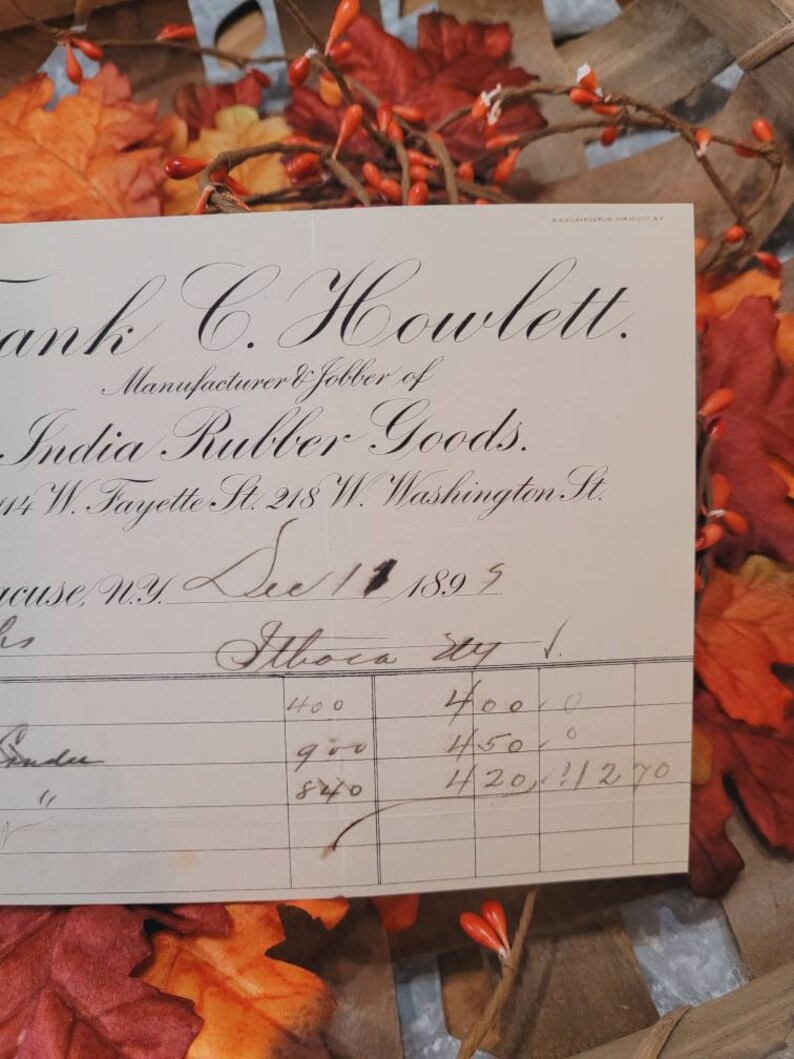 ank C. Howlett.
Manufacturer & Jobber of
India Rubber Goods.
14 W. Fayette St. 218 W. Washington St.
acuse, N.Y. Dec 11 1899
Ithaca NY
400 400
900 450
" 840 420 12 70